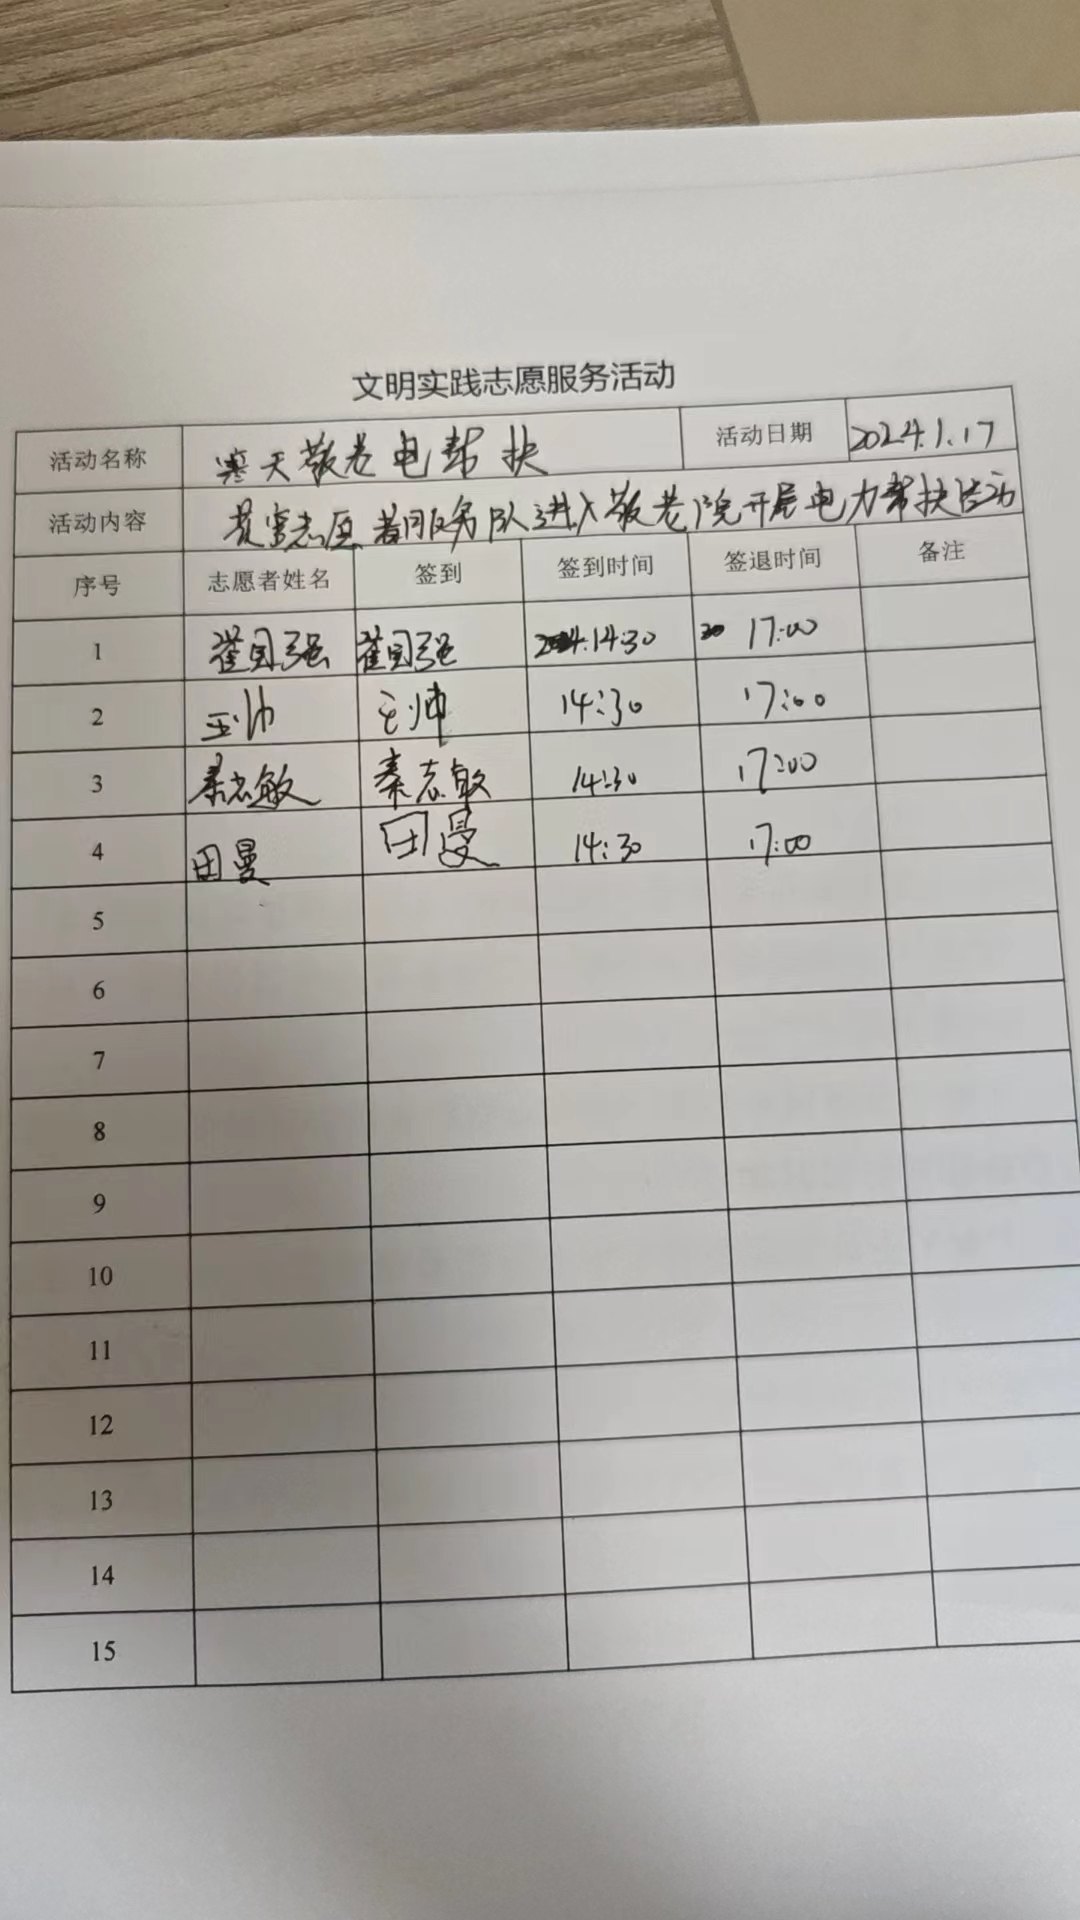 文明实践志愿服务活动
活动名称 寒天敬老电帮扶 活动日期 2024.1.17
活动内容 志愿者服务队进入敬老院开展电力帮扶活动
序号 志愿者姓名 签到 签到时间 签退时间 备注
1 国强 国强 14:30 17:00
2 王帅 王帅 14:30 17:00
3 秦志敏 秦志敏 14:30 17:00
4 田曼 田曼 14:30 17:00
5
6
7
8
9
10
11
12
13
14
15